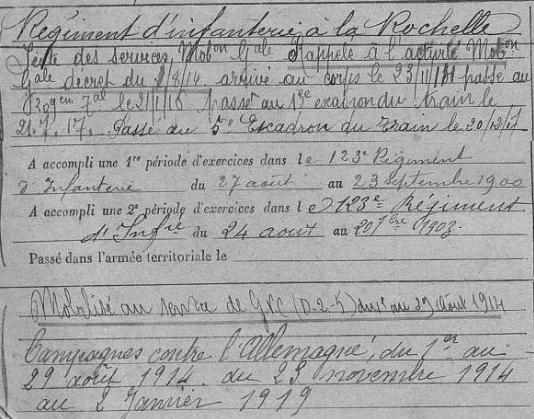 Régiment d'infanterie à la Rochelle
des services, Mob^on G^ale Rappelé à l'activité Mob^on
G^ale décret du 1/8/14 arrivé au corps le 23/11/14 passé au
le 2/1/16 passé au 1^er escadron du train le
21.7.17. Passé au 5^e Escadron du Train le 20/12/17
A accompli une 1^re période d'exercices dans le 123^e Régiment
d'Infanterie du 27 août au 23 Septembre 1900
A accompli une 2^e période d'exercices dans le 123^e Régiment
d'Inf^rie du 24 août au 20 7^bre 1903.
Passé dans l'armée territoriale le
Mobilisé au service de G.V.C. du 1^er au 29 Août 1914
Campagnes contre l'Allemagne, du 1^er au
29 août 1914. du 23 novembre 1914
au 2 Janvier 1919